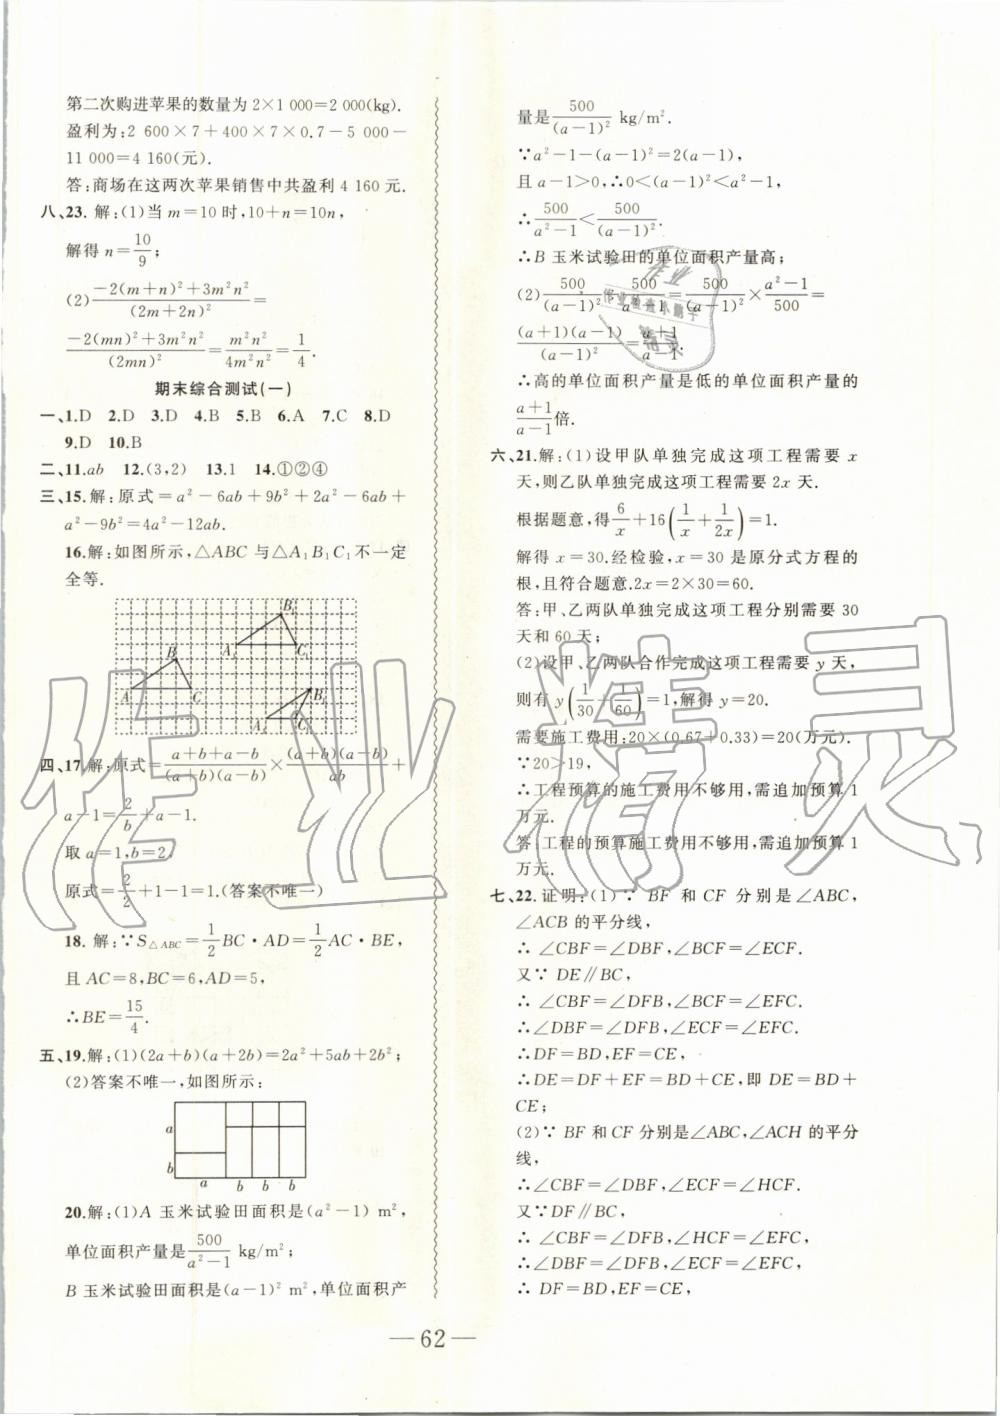 第二次购进苹果的数量为2×1 000=2 000(kg).
盈利为:2 600×7+400×7×0.7-5 000-
11 000=4 160(元).
答:商场在这两次苹果销售中共盈利4 160元.
八、23. 解:(1)当m=10时,10+n=10n,
解得n=10/9;
(2)(-2(m+n)²+3m²n²)/(2m+2n)²=
(-2(mn)²+3m²n²)/(2mn)²=m²n²/4m²n²=1/4.
期末综合测试(一)
一、1.D 2.D 3.D 4.B 5.B 6.A 7.C 8.D
9.D 10.B
二、11.ab 12.(3,2) 13.1 14.①②④
三、15.解:原式=a²-6ab+9b²+2a²-6ab+
a²-9b²=4a²-12ab.
16.解:如图所示,△ABC与△A₁B₁C₁不一定
全等.
B₁
A₁ C₁
B
A C
B₂
四、17 解:原式=(a+b+a-b)/((a+b)(a-b))×((a+b)(a-b))/ab+
a-1=2/b+a-1.
取a=1,b=2,
原式=2/2+1-1=1.(答案不唯一)
18. 解:∵S△ABC=1/2BC·AD=1/2AC·BE,
且AC=8,BC=6,AD=5,
∴BE=15/4.
五、19.解:(1)(2a+b)(a+2b)=2a²+5ab+2b²;
(2)答案不唯一,如图所示:
a
b
a b b b
20.解:(1)A玉米试验田面积是(a²-1) m²,
单位面积产量是500/(a²-1) kg/m²;
B玉米试验田面积是(a-1)² m²,单位面积产
量是500/(a-1)² kg/m².
∵a²-1-(a-1)²=2(a-1),
且a-1>0,∴0<(a-1)²<a²-1,
∴500/(a²-1)<500/(a-1)².
∴B玉米试验田的单位面积产量高;
(2)500/(a-1)²÷500/(a²-1)=500/(a-1)²×(a²-1)/500=
((a+1)(a-1))/(a-1)²=(a+1)/(a-1).
∴高的单位面积产量是低的单位面积产量的
(a+1)/(a-1)倍.
六、21.解:(1)设甲队单独完成这项工程需要x
天,则乙队单独完成这项工程需要2x天.
根据题意,得6/x+16(1/x+1/2x)=1.
解得x=30.经检验,x=30是原分式方程的
根,且符合题意.2x=2×30=60.
答:甲、乙两队单独完成这项工程分别需要30
天和60天;
(2)设甲、乙两队合作完成这项工程需要y天,
则有y(1/30+1/60)=1,解得y=20.
需要施工费用:20×(0.67+0.33)=20(万元).
∵20>19,
∴工程预算的施工费用不够用,需追加预算1
万元.
答:工程的预算施工费用不够用,需追加预算1
万元.
七、22.证明:(1)∵BF和CF分别是∠ABC,
∠ACB的平分线,
∴∠CBF=∠DBF,∠BCF=∠ECF.
又∵DE∥BC,
∴∠CBF=∠DFB,∠BCF=∠EFC.
∴∠DBF=∠DFB,∠ECF=∠EFC.
∴DF=BD,EF=CE,
∴DE=DF+EF=BD+CE,即DE=BD+
CE;
(2)∵BF和CF分别是∠ABC,∠ACH的平分
线,
∴∠CBF=∠DBF,∠ECF=∠HCF.
又∵DF∥BC,
∴∠CBF=∠DFB,∠HCF=∠EFC
∴∠DBF=∠DFB,∠ECF=∠EFC,
∴DF=BD,EF=CE,
— 62 —
作业精灵
作业
作业检查小助手
精灵